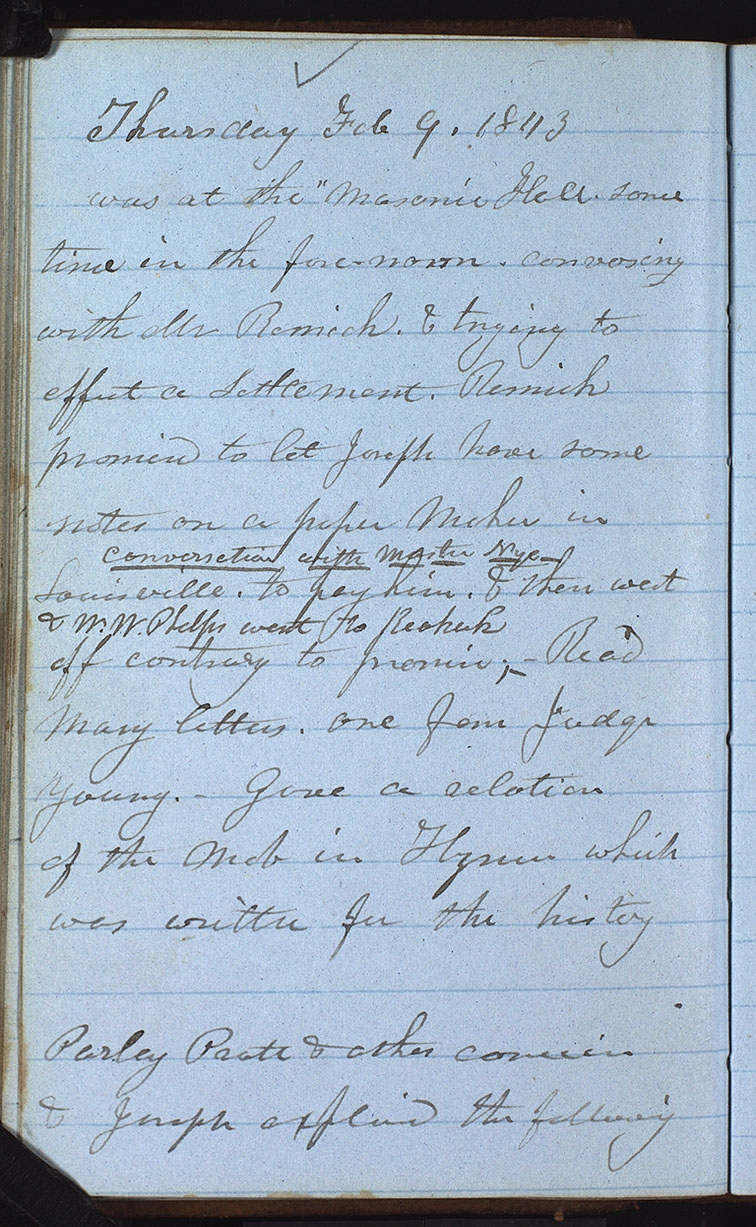 Thursday Feb 9. 1843
was at the "Masonic Hall. some
time in the fore-noon. conversing
with Mr Remick. & trying to
effect a settlement. Remick
promisd to let Joseph have some
notes on a paper Maker in
conversation with Master Nye
Louisville. to pay him. & then went
& W. W. Phelps went to Keokuk
off contrary to promise; – Read
Many letters. one from Judge
Young. – Gave a relation
of the Mob in Hyrum which
was written for the history
Parley Pratt & other come in
& Joseph explaind the following